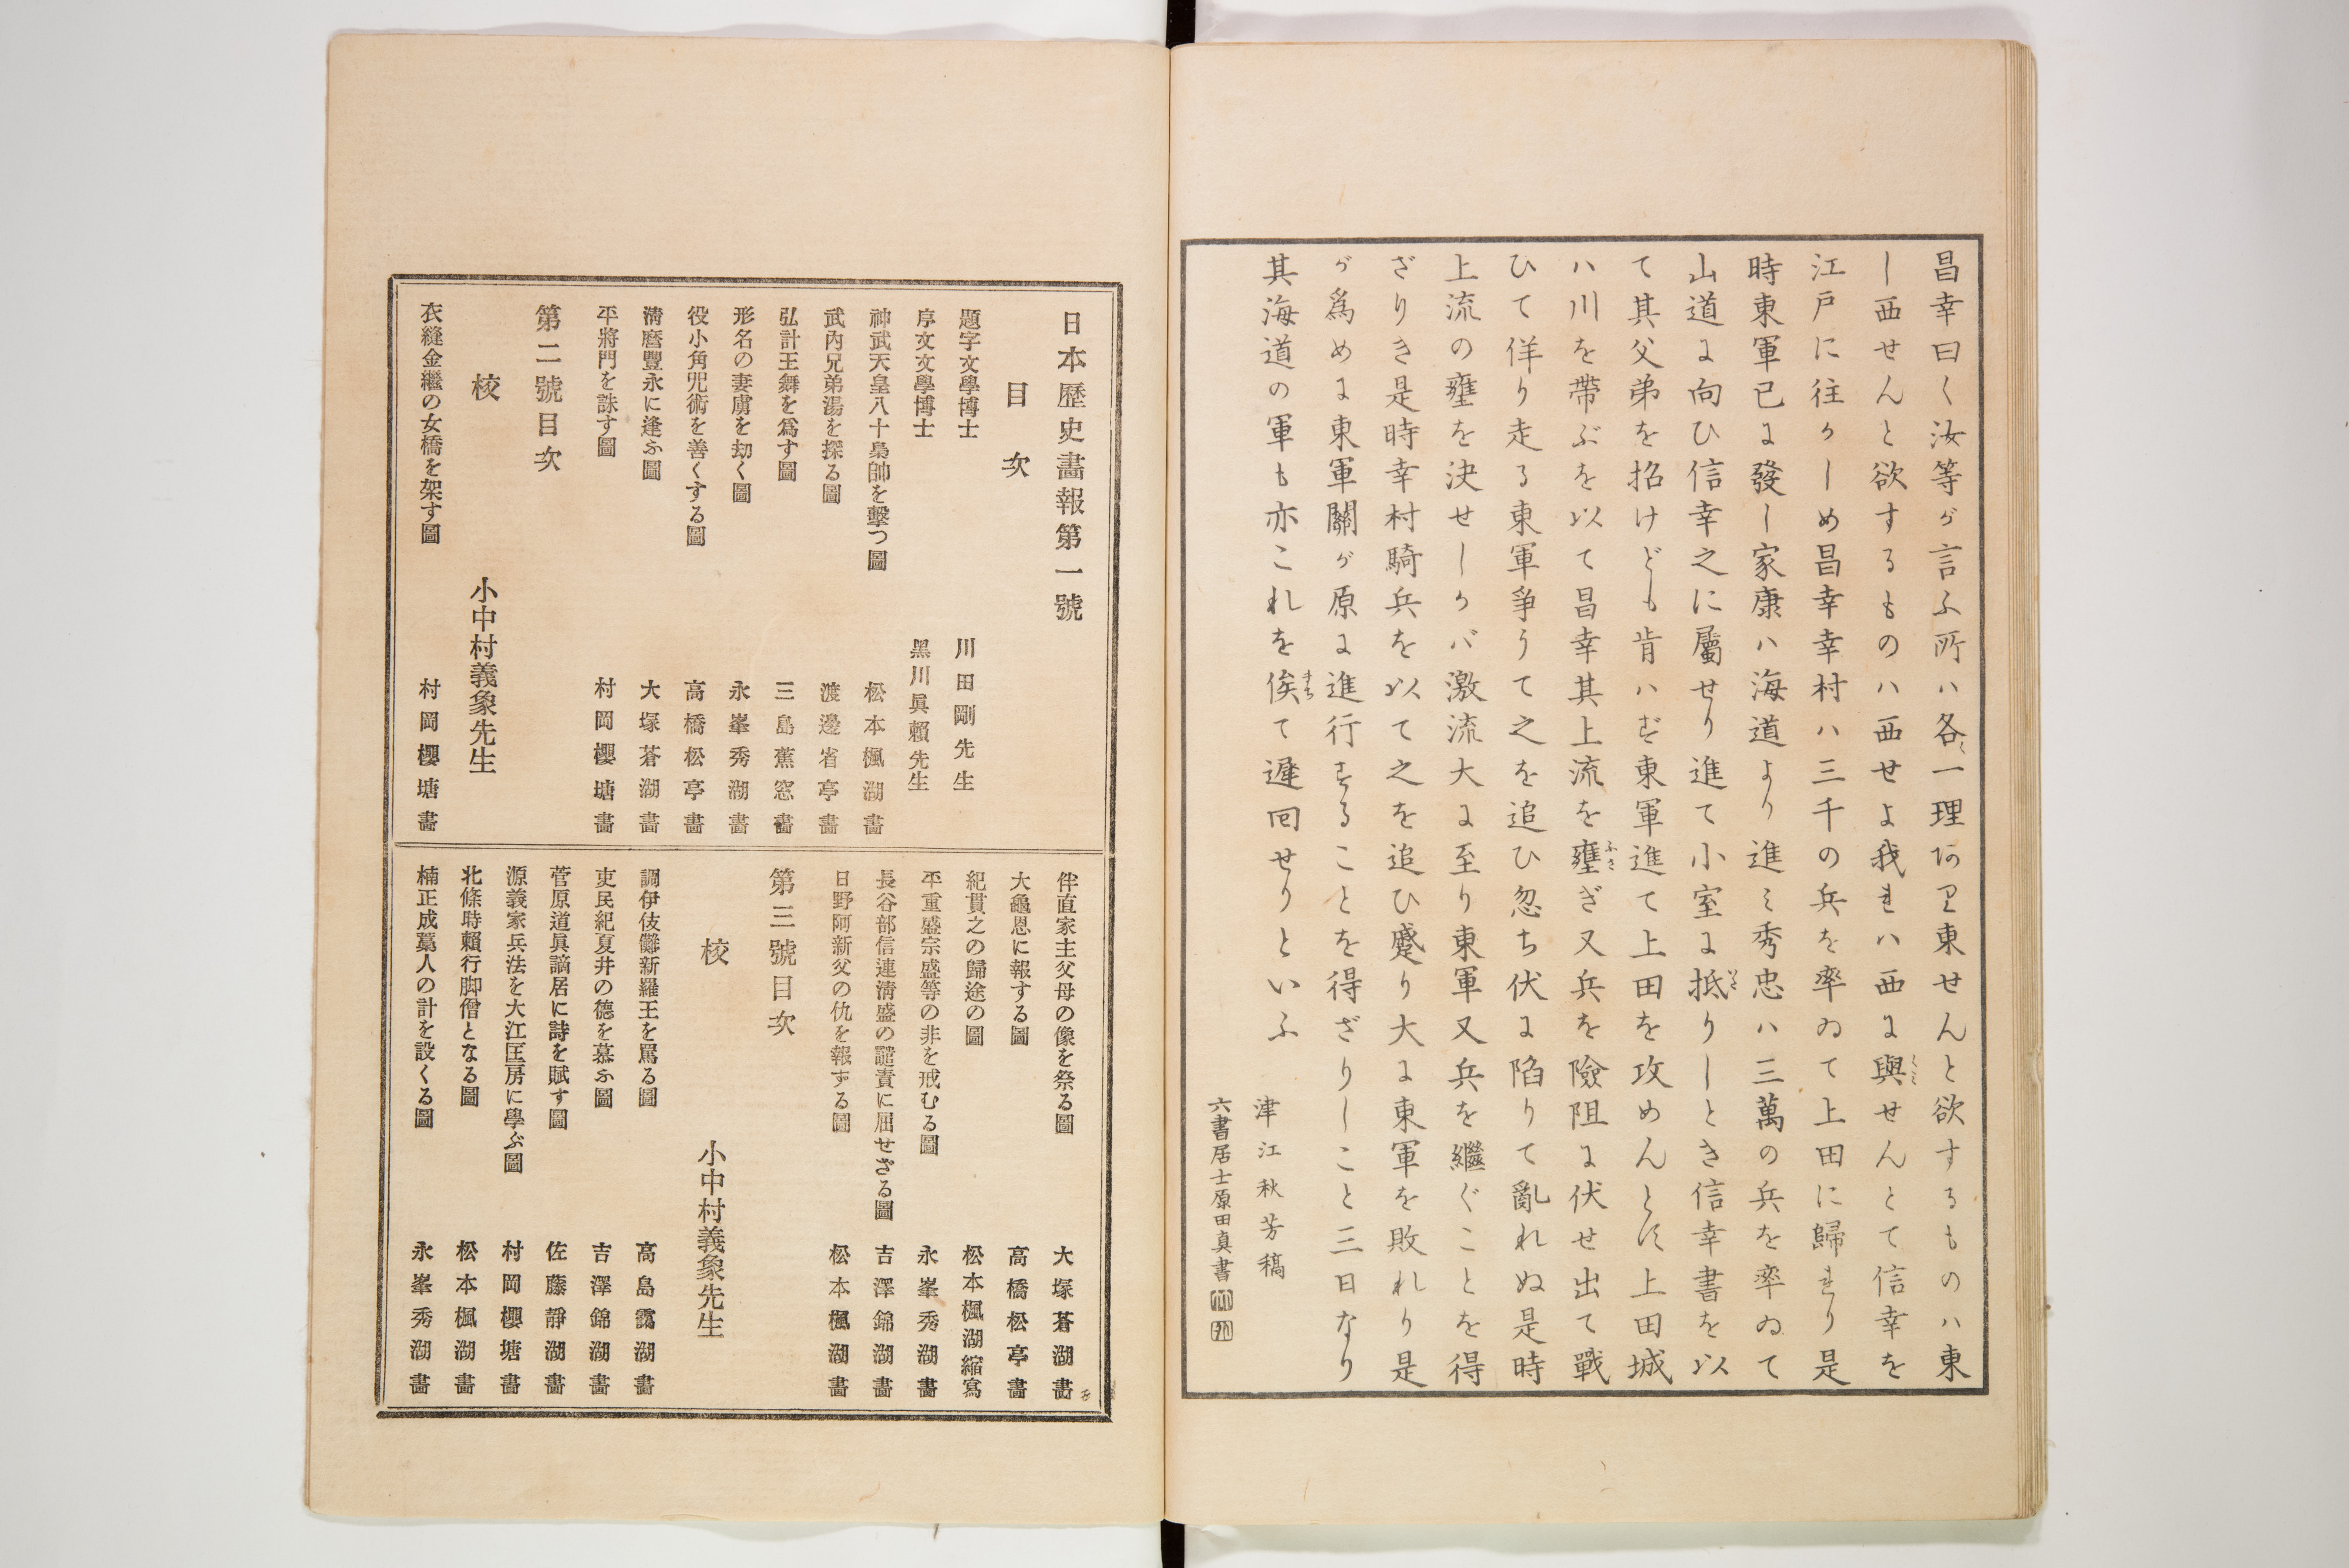 昌幸曰く汝等が言ふ所ハ各〻一理あり東せんと欲するものハ東
し西せんと欲するものハ西せよ我れハ西に與せんとて信幸を
江戸に往かしめ昌幸幸村ハ三千の兵を率ゐて上田に歸れり是
時東軍已に發し家康ハ海道より進ミ秀忠ハ三萬の兵を率ゐて
山道に向ひ信幸之に屬せり進て小室に抵りしとき信幸書を以
て其父弟を招けども肯ハず東軍進て上田を攻めんとす上田城
ハ川を帶ぶを以て昌幸其上流を壅ぎ又兵を險阻に伏せ出て戰
ひて佯り走る東軍爭うて之を追ひ忽ち伏に陷りて亂れぬ是時
上流の壅を決せしかバ激流大に至り東軍又兵を繼ぐことを得
ざりき是時幸村騎兵を以て之を追ひ蹙り大に東軍を敗れり是
が爲めに東軍關が原に進行することを得ざりしこと三日なり
其海道の軍も亦これを俟て遲回せりといふ
津江秋芳稿
六書居士原田真書
日本歷史畵報第一號
目次
題字文學博士 川田剛先生
序文文學博士 黑川眞賴先生
神武天皇八十梟帥を擊つ圖 松本楓湖畵
武內兄弟湯を探る圖 渡邊省亭畵
弘計王舞を爲す圖 三島蕉窓畵
形名の妻虜を刧く圖 永峯秀湖畵
役小角咒術を善くする圖 高橋松亭畵
淸麿豐永に逢ふ圖 大塚蒼湖畵
平將門を誅す圖 村岡櫻塘畵
第二號目次
校 小中村義象先生
衣縫金繼の女橋を架す圖 村岡櫻塘畵
伴直家主父母の像を祭る圖 大塚蒼湖畵
大龜恩に報する圖 高橋松亭畵
紀貫之の歸途の圖 松本楓湖縮寫
平重盛宗盛等の非を戒むる圖 永峯秀湖畵
長谷部信連淸盛の譴責に屈せざる圖 吉澤錦湖畵
日野阿新父の仇を報ずる圖 松本楓湖畵
第三號目次
校 小中村義象先生
調伊伎儺新羅王を罵る圖 高島靄湖畵
吏民紀夏井の德を慕ふ圖 吉澤錦湖畵
菅原道眞謫居に詩を賦す圖 佐藤靜湖畵
源義家兵法を大江匡房に學ぶ圖 村岡櫻塘畵
北條時賴行脚僧となる圖 松本楓湖畵
楠正成藁人の計を設くる圖 永峯秀湖畵